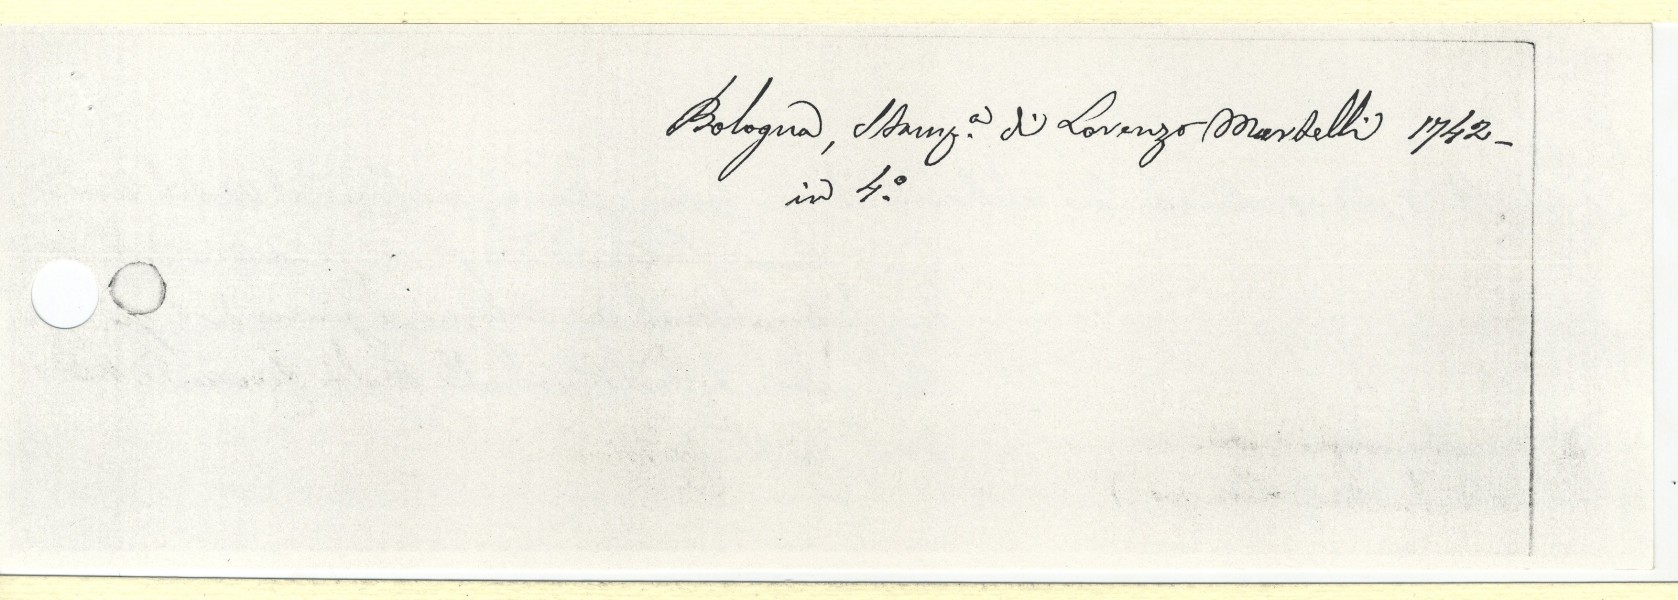 Bologna, Stamp.ª di Lorenzo Martelli 1742_
in 4.º